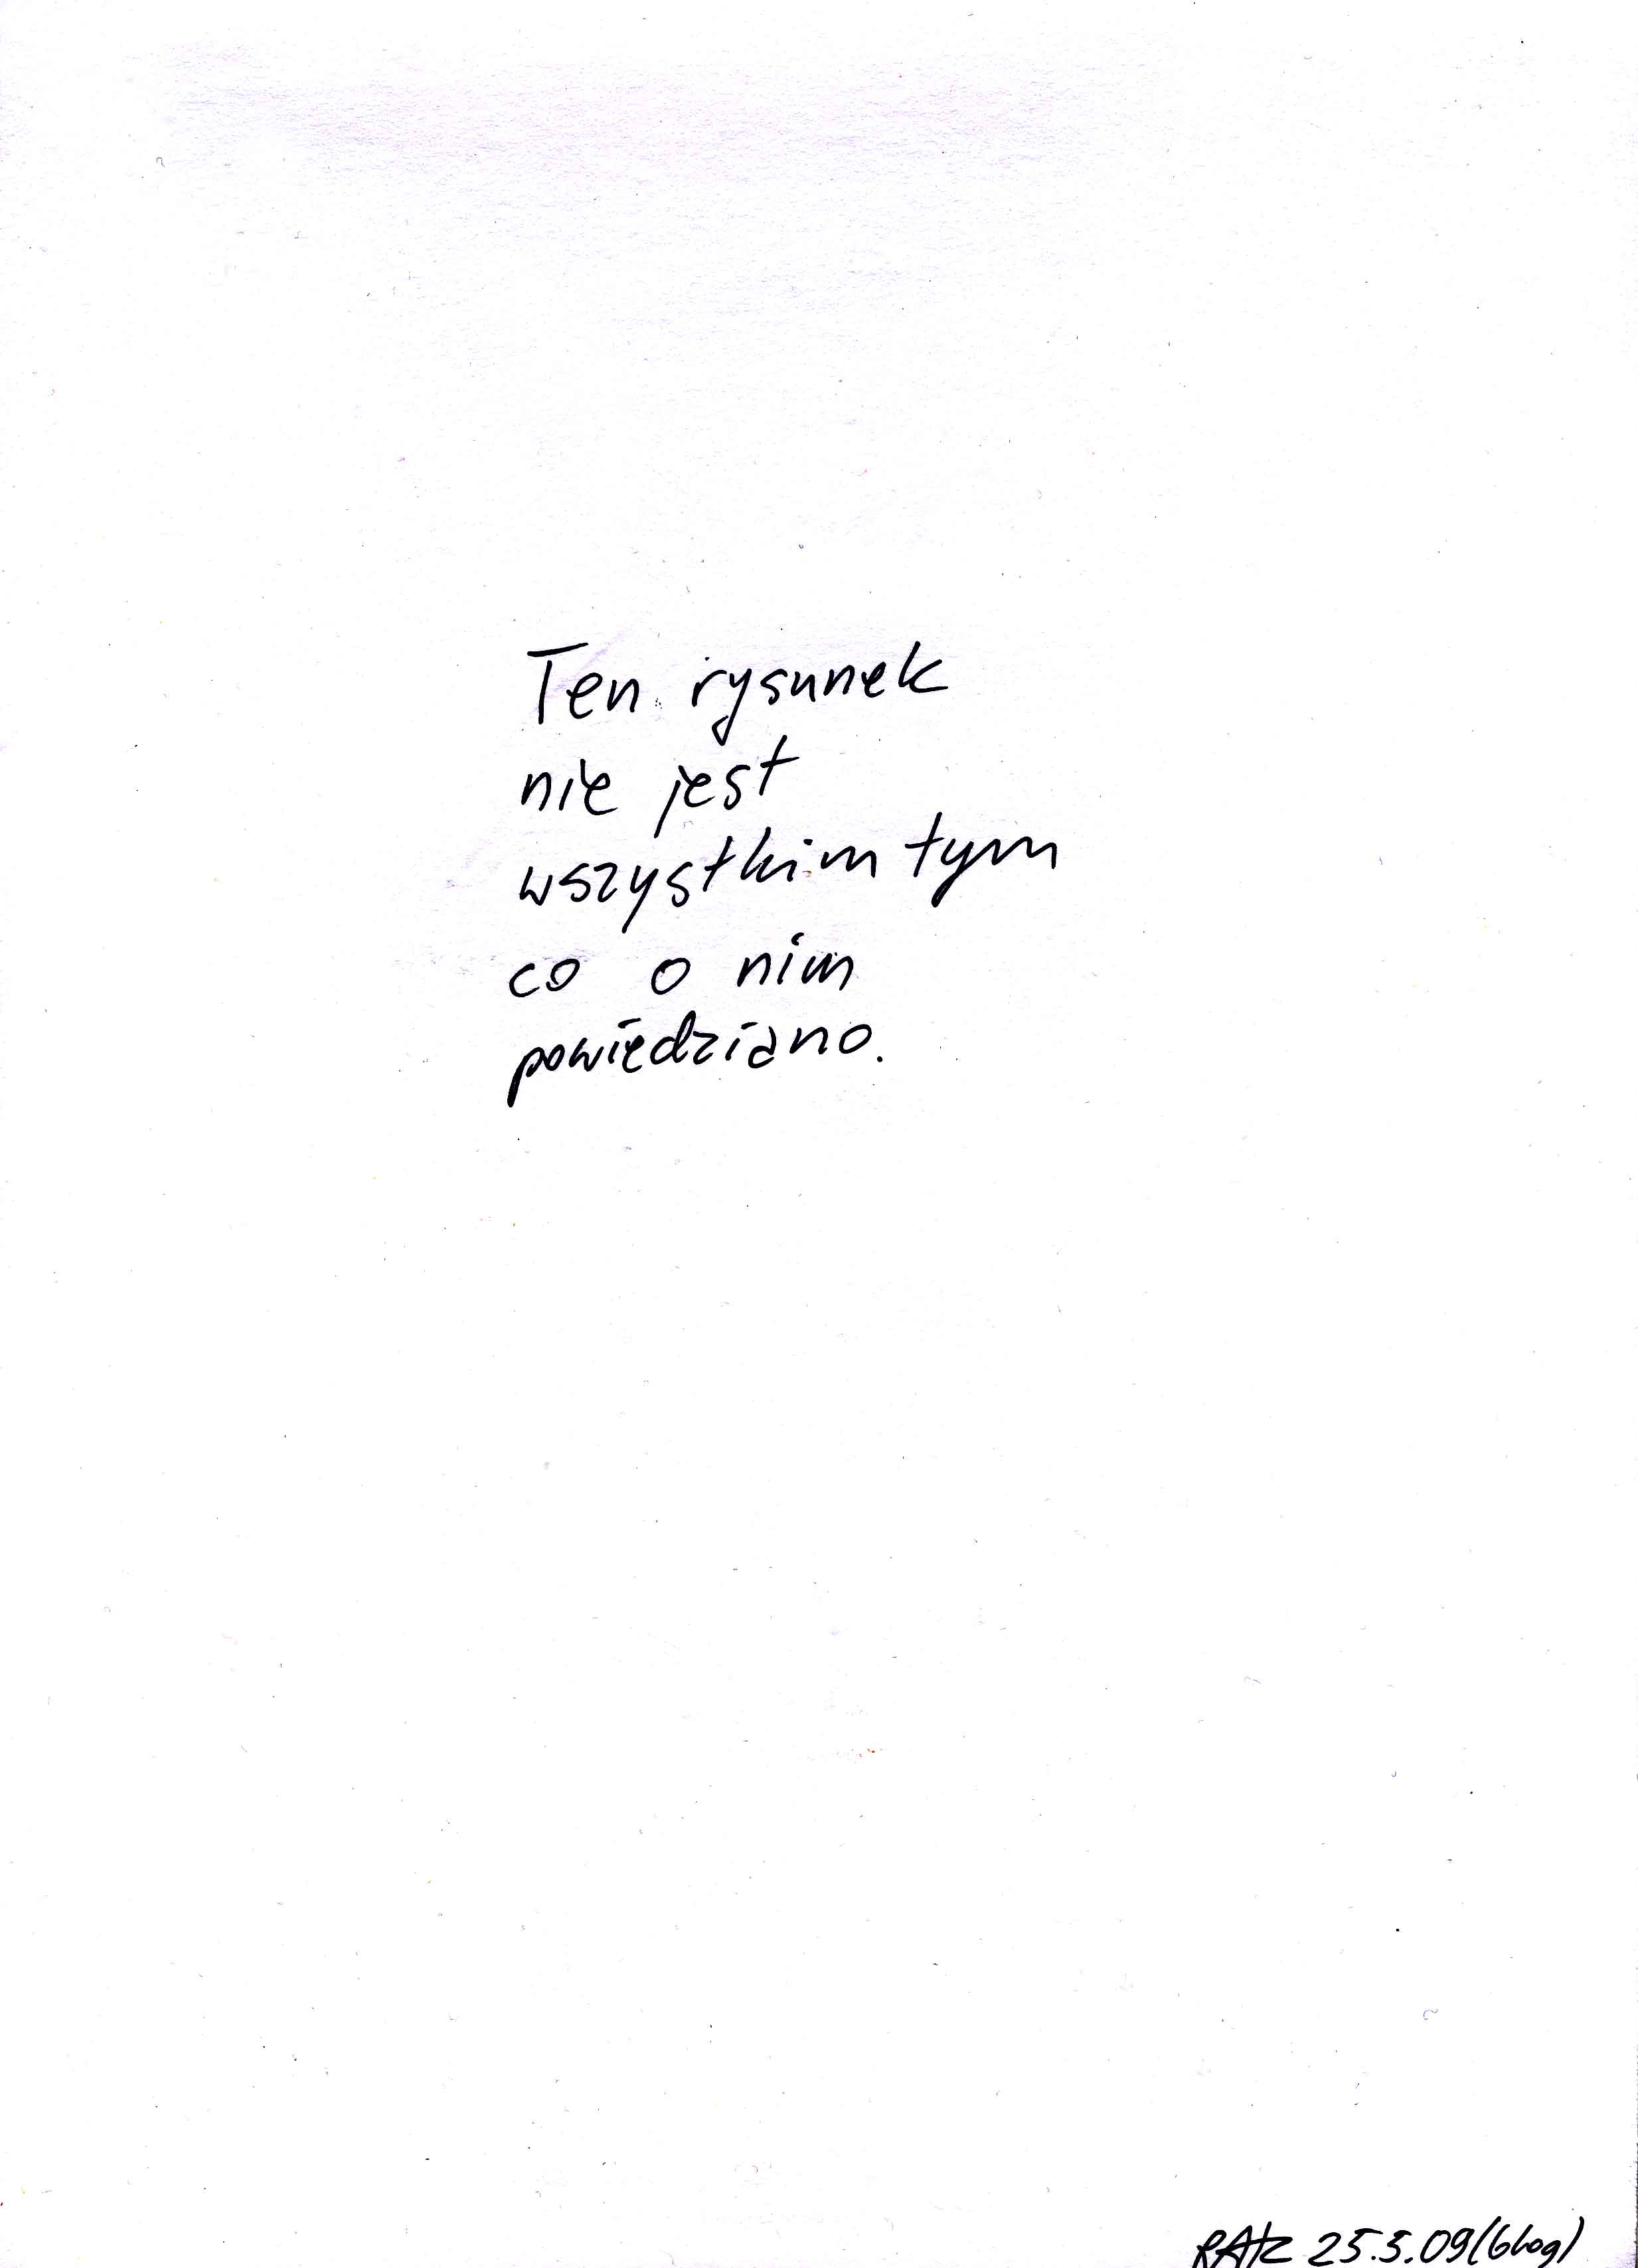 Ten rysunek
nie jest
wszystkim tym
co o nim
powiedziano.
25.5.09 (blog)